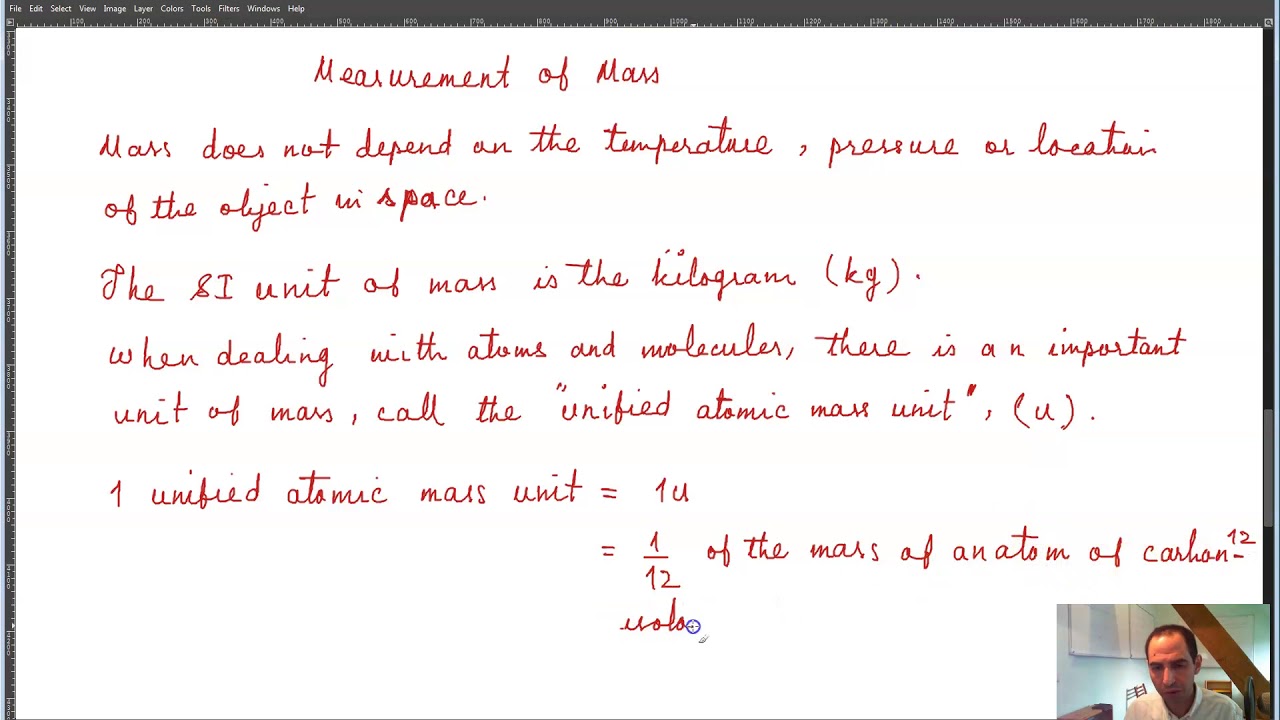 File Edit Select View Image Layer Colors Tools Filters Windows Help
Measurement of Mass
Mass does not depend on the temperature, pressure or location
of the object in space.
The SI unit of mass is the kilogram (kg).
when dealing with atoms and molecules, there is an important
unit of mass, call the "unified atomic mass unit", (u).
1 unified atomic mass unit = 1u
= 1/12 of the mass of an atom of carbon-12